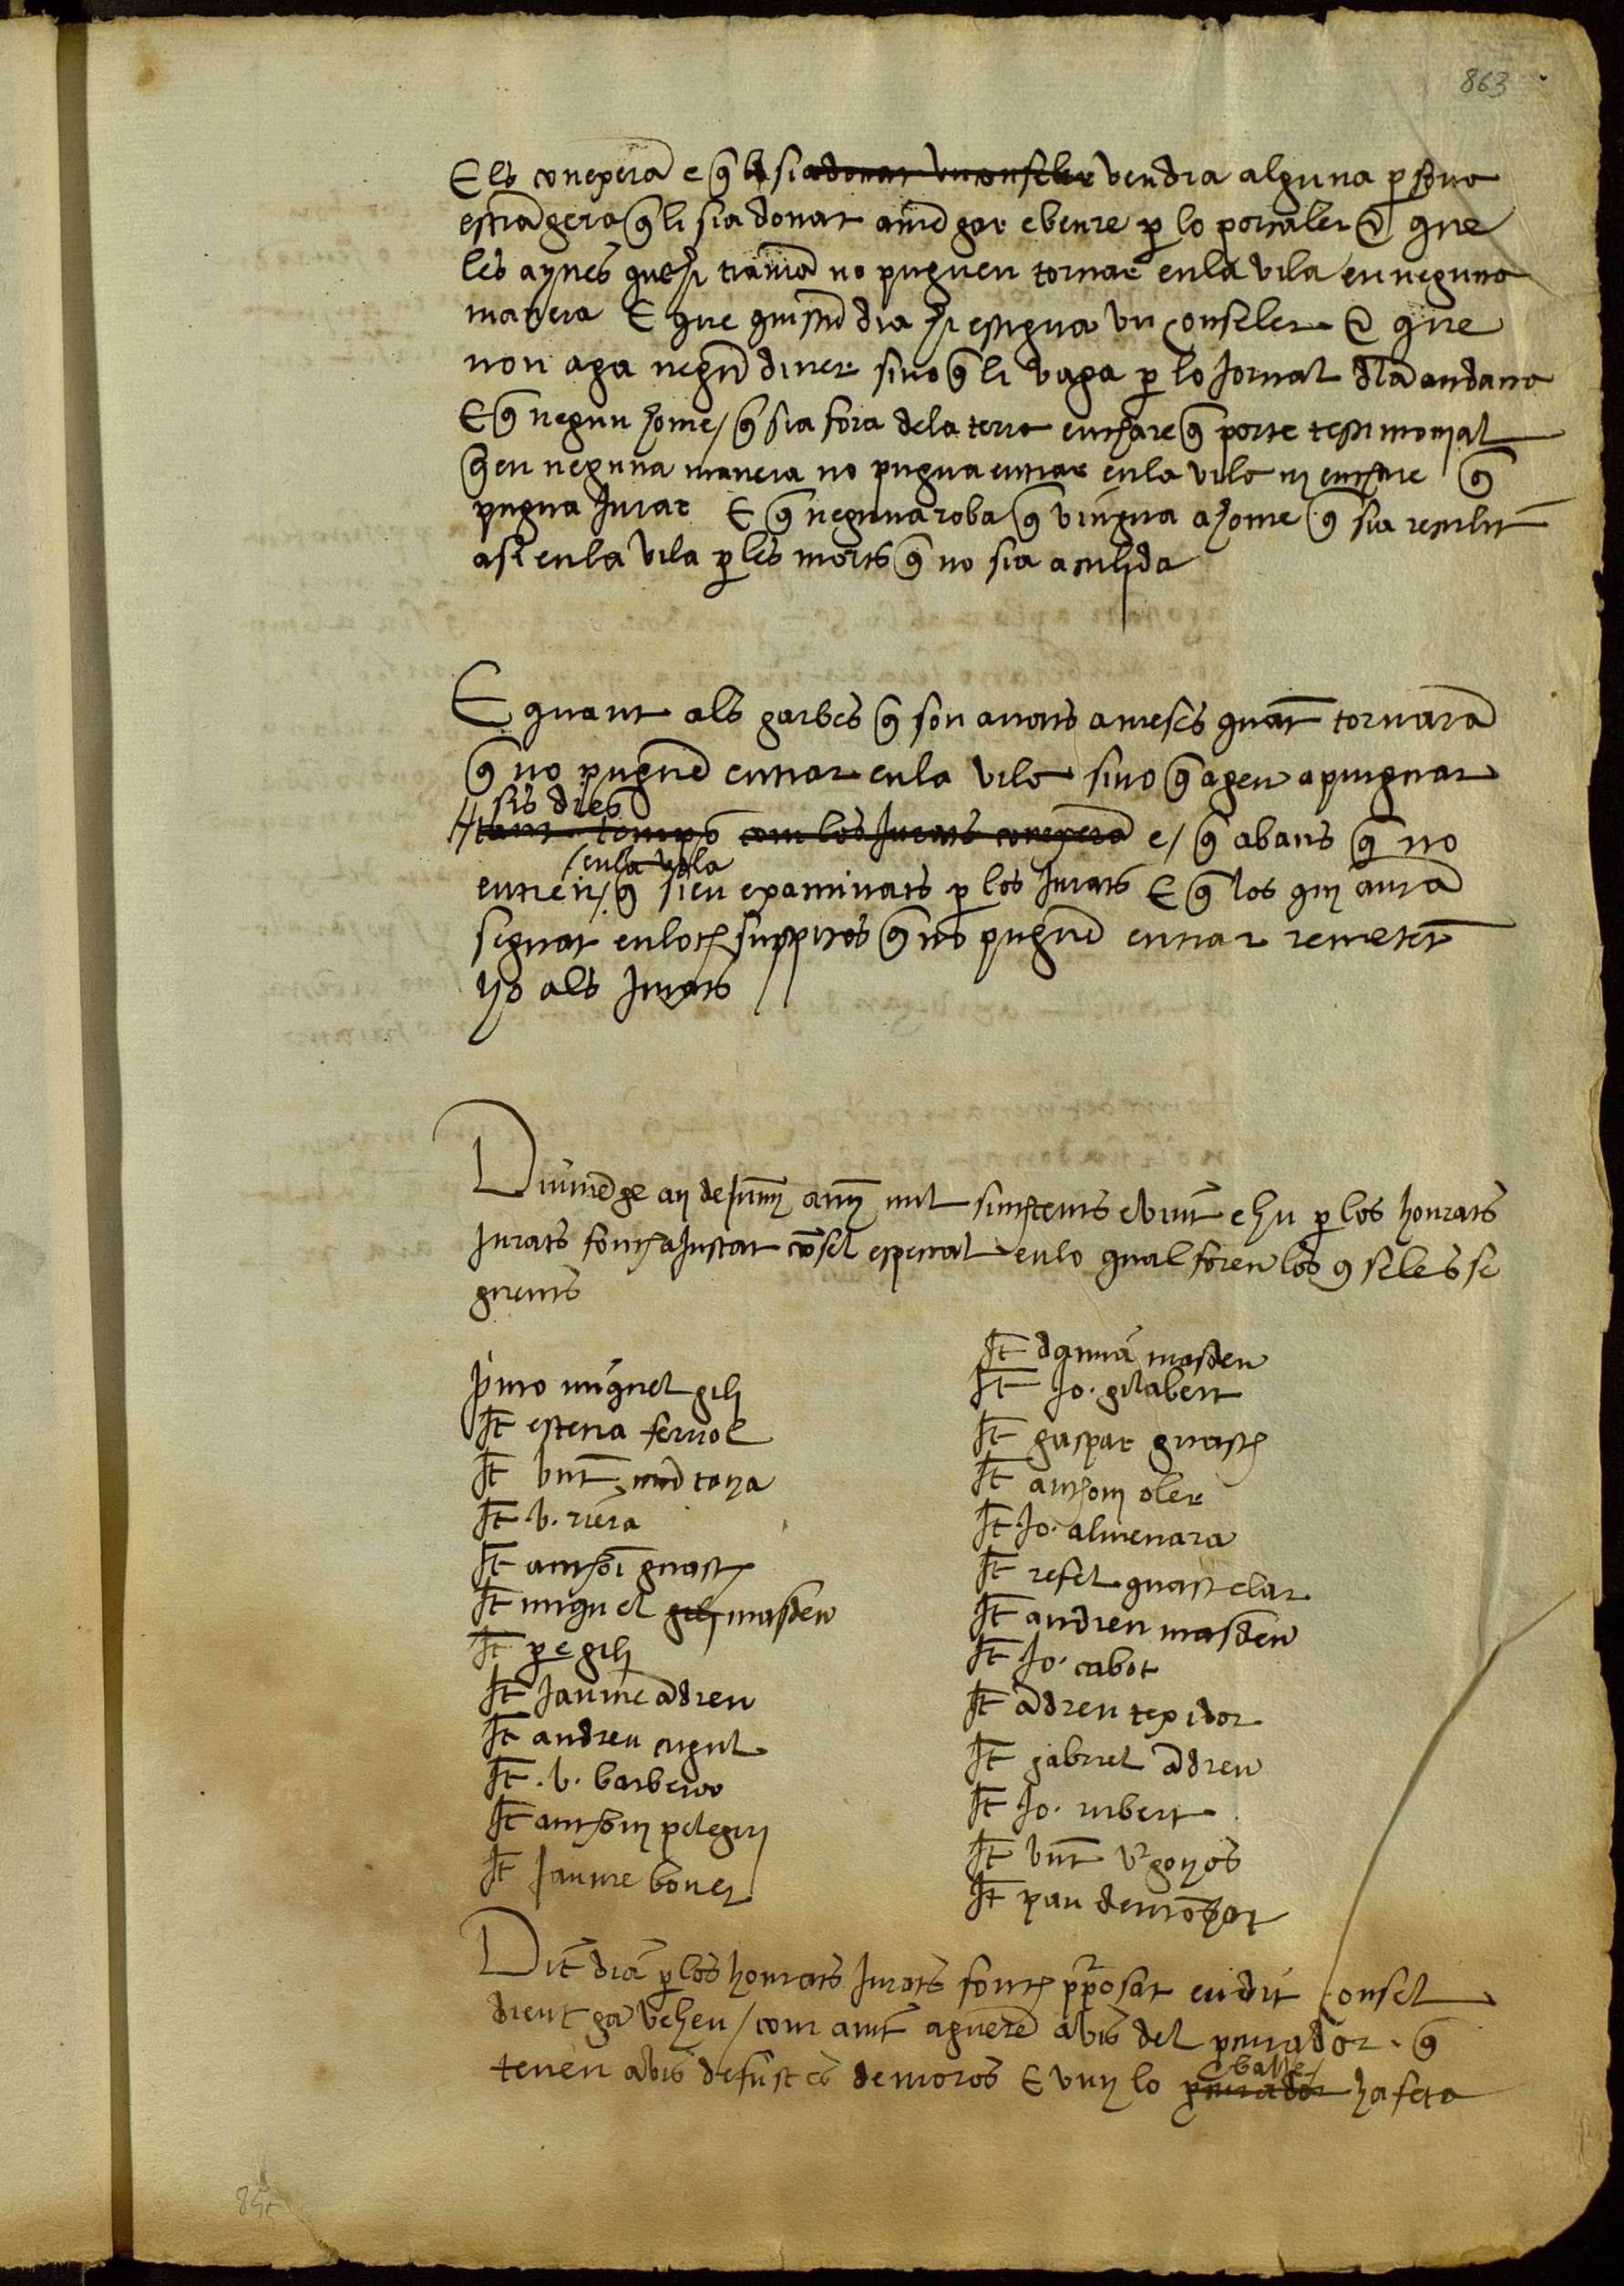 863
E ls conexerã e q̃ li si a donar un conseler vendra alguna p̱sona
estrãgera q̃ li sia donat amẽgar e beure p̱ lo portaler e que
les aynes que hi tranra no puguen tornar en la vila en neguna
manera E que quiscũ dia hi estigua un conseler e que
non aga negũ diner sino q̃ li vaga p̱ lo Jornal d la andana
E q̃ negun home / q̃ sia fora de la terra enchare q̃ porte testimonjal
q̃ en neguna manera no pugua entrar en la vila nj encare q̃
pugua Jurar E q̃ neguna roba q̃ vingua a home q̃ sia resulut
asi en la vila p̱ les morts q̃ no sia aculida
E quant als garbes q̃ son anats a meses quãt tornarã
q̃ no puguẽ entrar en la vila sino q̃ agen apurguar
sis dies
tant temps com los Jurats conexerã e / q̃ abans q̃ no
en la vila
entren / q̃ sien examinats p̱ los Jurats E q̃ los quj aurã
seguat en loch suspitos q̃ no puguẽ entrar remetet
ho als Jurats
Diumẽge a ij de Juny anÿ mil sinchcents e vint e hu p̱ los honrats
Jurats fonch aJustat cõsel espetial en lo qual foren los cõselés se
guents
p̱mo miguel gilj
It esteva ferrol
It bnt montoya
It b. riera
It anthoi guasch
It miquel gilj masdeu
It pe gilj
It Jaume ãdreu
It andreu cugul
It . b. barbero
It anthonj pelegrj
It Jaume bonet
It damiã masdeu
It Jo. gilabert
It gaspar guasch
It anthonj oler
It Jo. almenara
It refel guastelar
It andreu masdeu
It Jo. cabot
It ãdreu texidor
It gabriel ãdreu
It Jo. rubert
It bnt v̱gonyos
It pau demõbar
Dit dia p̱ los honrats Jurats fonch p̱posat en dit consel
dient Ja vehen / com anit aguerẽ avis del p̱curador . q̃
balle
tenen avis de fustes de moros E vuy lo p̱curador ha feta